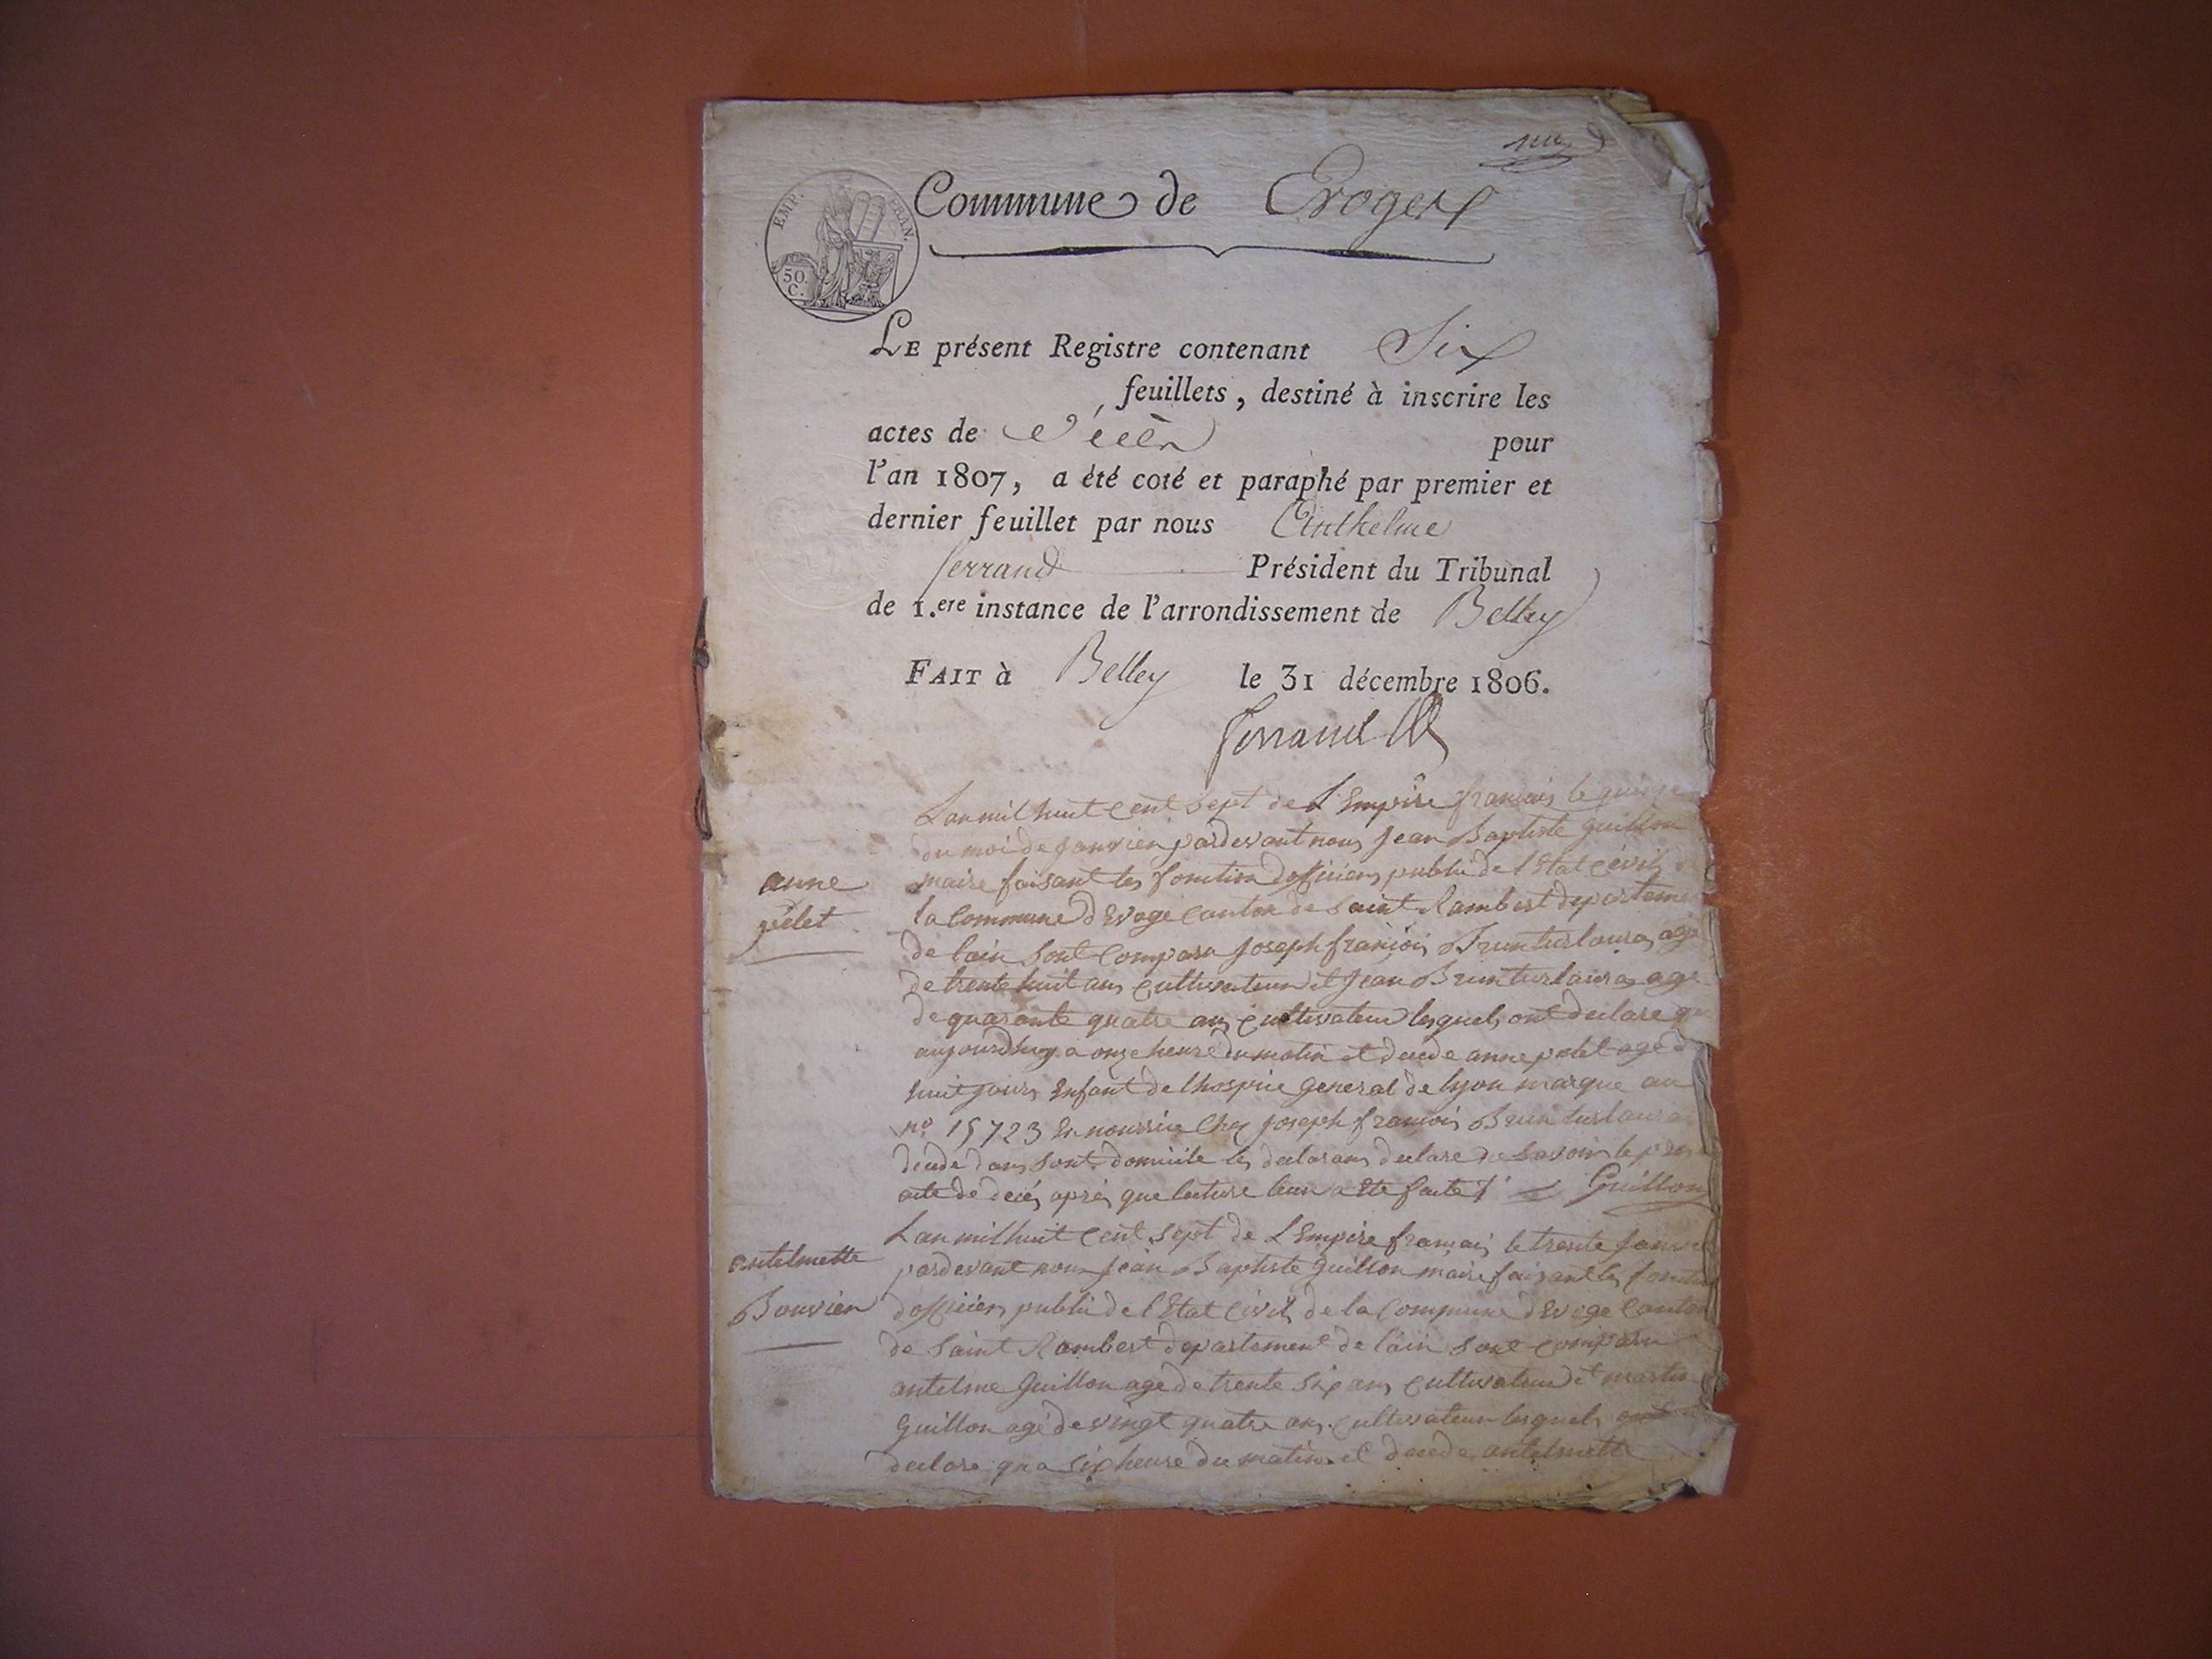 EMP. FRAN.
50 C.
Commune de Evoges
LE présent Registre contenant Six
feuillets, destiné à inscrire les
actes de décès pour
l'an 1807, a été coté et paraphé par premier et
dernier feuillet par nous Anthelme
ferrand Président du Tribunal
de 1.ere instance de l'arrondissement de Belley
FAIT à Belley le 31 décembre 1806.
ferrand
Lan mil huit cent sept de L'Empire francais le quinze
du moi de Janvier pardevant nous Jean Baptiste Guillon
maire faisant les fonction dofficier public de l'Etat civil
anne
la Commune dEvoge canton de Saint Rambert departemen
de lain sont comparu Joseph francois Brun turlaura agé
de trente huit ans cultivateur et Jean Brun turlaura age
de quarante quatre ans cultivateur lesquels ont declare que
aujourdhuy a onze heure du matin et decede anne agé d
huit jours Enfant de lhospice general de lyon marque au
no 15723 En nourrice chez Joseph francois Brun turlaura
decede dans sont domicile les declarans declare savoir le
acte de decés aprés que lecture leur a Ete faite Guillon
Lan mil huit cent sept de L'Empire francais le trente Janvie
antelmette
pardevant nous Jean Baptiste Guillon maire faisant les fonction
Bouvier
dofficier public de l'Etat civil de la commune dEvoge Canton
de Saint Rambert departement de lain sont comparu
antelme Guillon age de trente six ans cultivateur et martin
Guillon agé de vingt quatre ans cultivateur lesquels ont
declare qua six heure du matin et decede antelmette